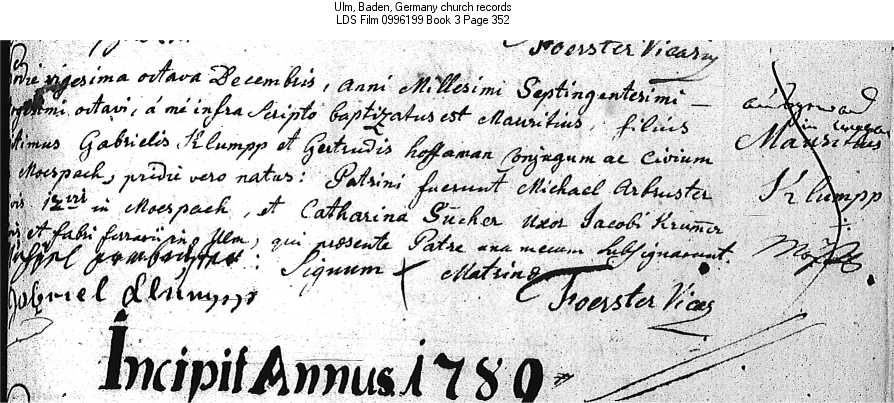 Ulm, Baden, Germany church records
LDS Film 0996199 Book 3 Page 352
Foerster Vicary
vigesima octava Decembris, anni Millesimi Septingentesimi —
octavi, á me infra scripto baptizatus est Mauritius, filius
Gabrielis Klumpp et Gertrudis hoffaman Conjugum ac Civium
Moespach, pridie vero natus: Patrini fuerunt Michael Arbruster
in Moespach, et Catharina Sücher uxor Jacobi
et fabri ferrarii in Ulm, qui præsente Patre una mecum subsignarunt.
Signum Matrinæ
Gabriel Klumpp
Foerster Vicar
Mauritius
Klumpp
Incipit Annus 1789